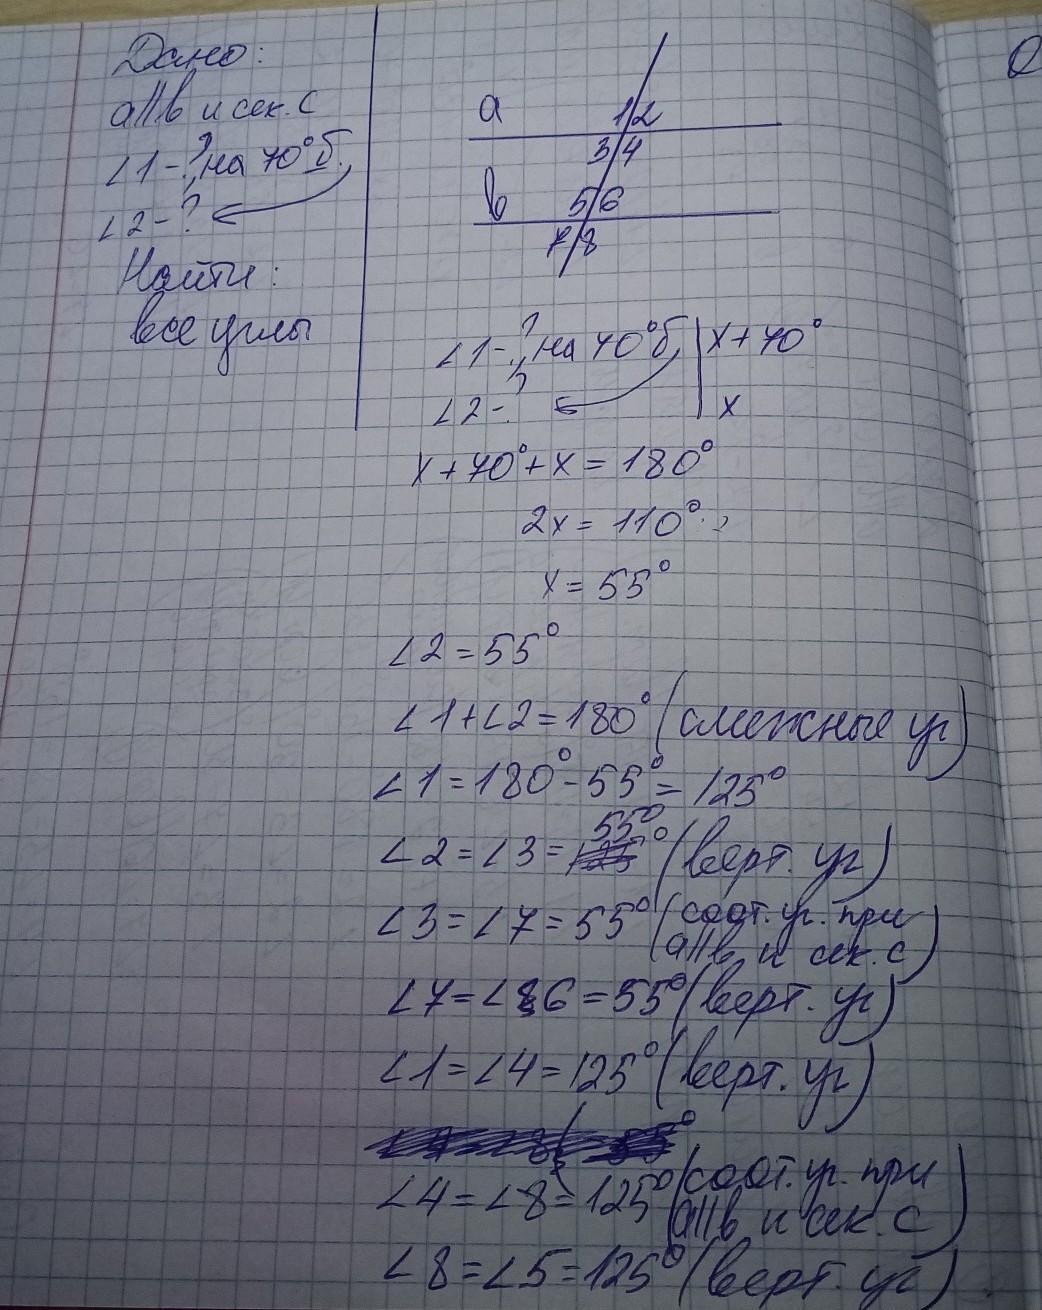 Дано:
a||в и сек. с
∠1 - ?, на 70° б.
∠2 - ?
Найти:
все углы
a
1 2
3 4
b
5 6
7 8
∠1 - ?, на 70° б. | x + 70°
∠2 - ? | x
x + 70° + x = 180°
2x = 110°
x = 55°
∠2 = 55°
∠1 + ∠2 = 180° (смежные уг)
∠1 = 180° - 55° = 125°
∠2 = ∠3 = 55° (верт. уг)
∠3 = ∠7 = 55° (соот. уг. при
a||в и сек. с)
∠7 = ∠6 = 55° (верт. уг)
∠1 = ∠4 = 125° (верт. уг)
∠4 = ∠8 = 125° (соот. уг. при
a||в и сек. с)
∠8 = ∠5 = 125° (верт. уг)